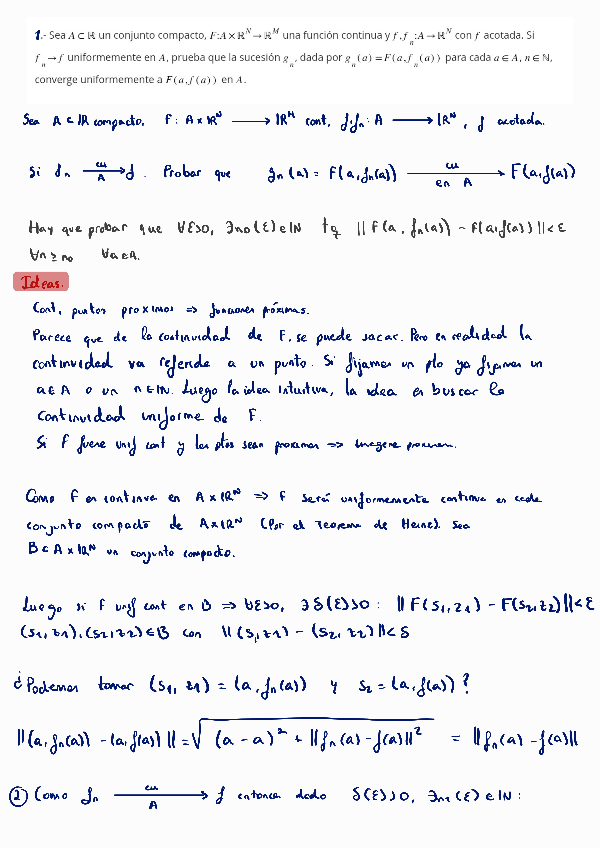 1.- Sea A ⊂ ℝ un conjunto compacto, F:A×ℝᴺ→ℝᴹ una función continua y f,fₙ:A→ℝᴺ con f acotada. Si
fₙ→f uniformemente en A, prueba que la sucesión gₙ, dada por gₙ(a)=F(a,fₙ(a)) para cada a∈A, n∈ℕ,
converge uniformemente a F(a,f(a)) en A.
Sea A ⊂ ℝ compacto, F: A×ℝᴺ → ℝᴹ cont, f,fₙ: A → ℝᴺ, f acotada.
Si fₙ →(cu, A) f. Probar que gₙ(a) = F(a,fₙ(a)) →(cu en A) F(a,f(a))
Hay que probar que ∀ε>0, ∃n₀(ε)∈ℕ tq ||F(a,fₙ(a)) - F(a,f(a))||<ε
∀n≥n₀ ∀a∈A.
Ideas.
Cont, puntos proximos => funciones próximas.
Parece que de la continuidad de F, se puede sacar. Pero en realidad la
continuidad va referida a un punto. Si fijamos un pto ya fijamos un
a∈A o un n∈ℕ. Luego la idea intuitiva, la idea es buscar la
continuidad uniforme de F.
Si F fuese unif cont y los ptos sean proximos =>
Como F es continua en A×ℝᴺ => F será uniformemente continua en cada
conjunto compacto de A×ℝᴺ (Por el Teorema de Heine). Sea
B⊂A×ℝᴺ un conjunto compacto.
Luego si F unif cont en B => ∀ε>0, ∃δ(ε)>0: ||F(s₁,z₁) - F(s₂,z₂)||<ε
(s₁,z₁),(s₂,z₂)∈B con ||(s₁,z₁) - (s₂,z₂)||<δ
¿Podemos tomar (s₁,z₁) = (a,fₙ(a)) y s₂ = (a,f(a))?
||(a,fₙ(a)) - (a,f(a))|| = √((a-a)² + ||fₙ(a)-f(a)||²) = ||fₙ(a)-f(a)||
① Como fₙ →(cu, A) f entonces dado δ(ε)>0, ∃n₁(ε)∈ℕ: